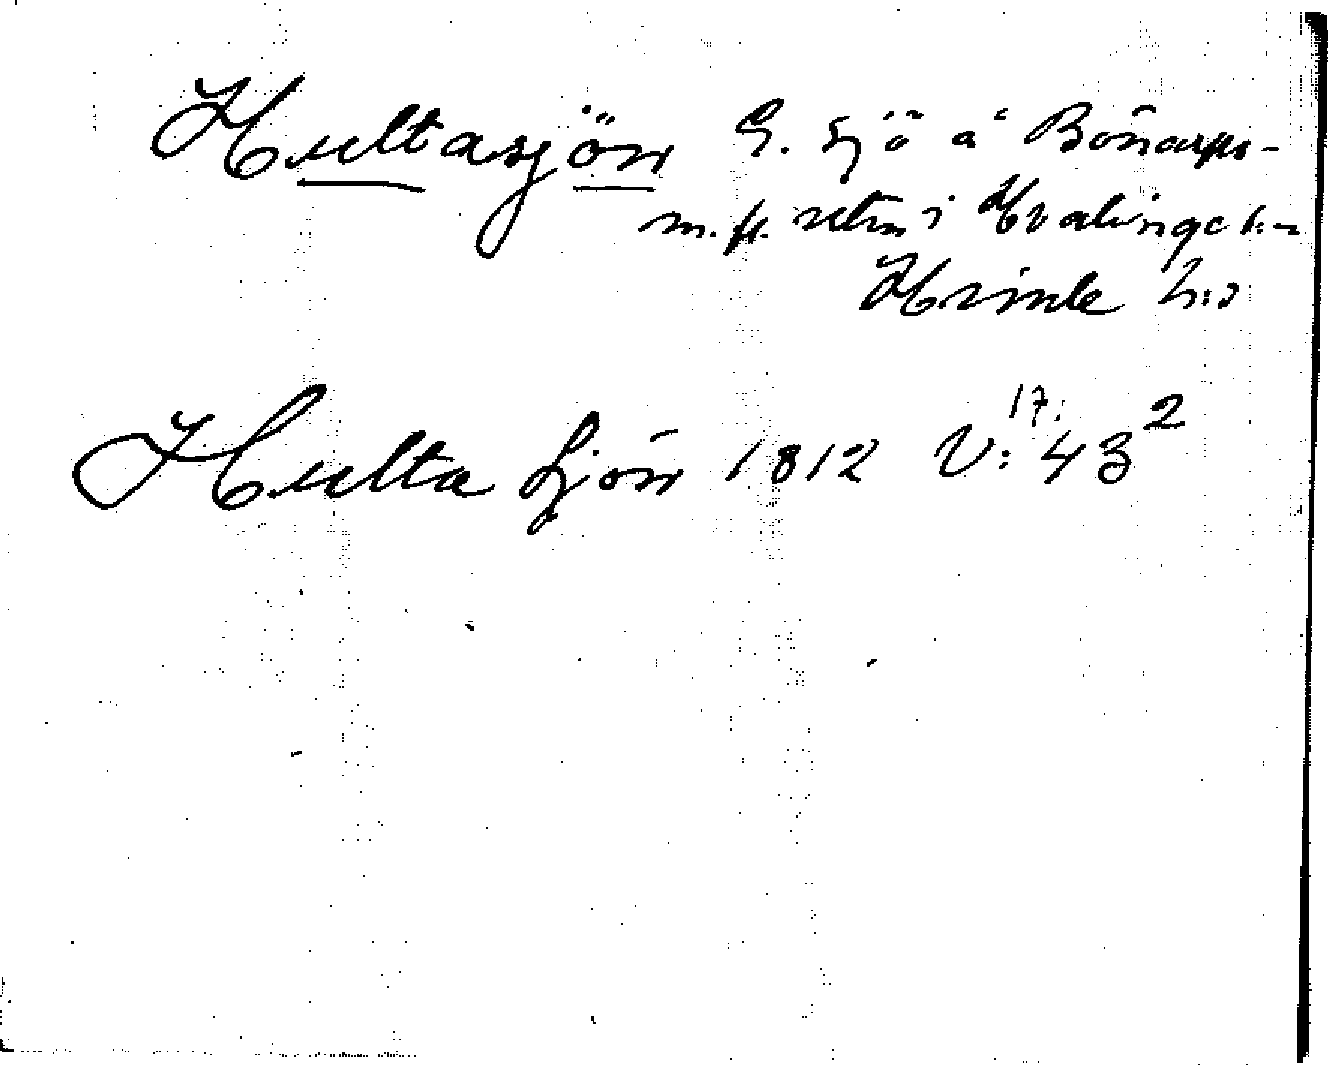 Hultasjön G. sjö å Bönarps-
m. fl. utm i Hvalinge s:n
Himle h:d
Hulta Sjön 1812 V: 17: 43 2